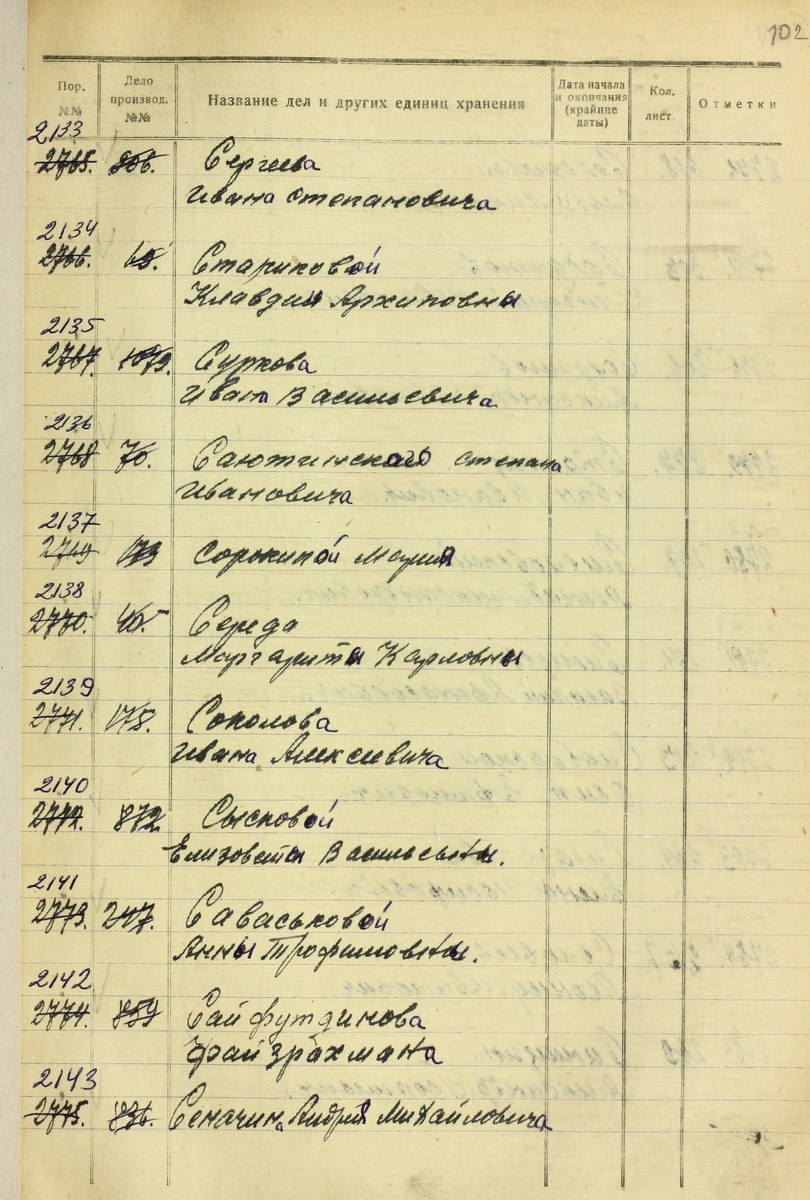 102
Пор. №№ Дело производ. №№ Название дел и других единиц хранения Дата начала и окончания (крайние даты) Кол. лист. Отметки
2133
2765. 806. Сергеева
Ивана Степановича
2134
2766. 65. Стариковой
Клавдии Архиповны
2135
2767. 1079. Суркова
Ивана Васильевича
2136
2768 70. Саютинского Степана
Ивановича
2137
2769 173 Сорокиной Марии
2138
2770. 40. Середа
Маргариты Карловны
2139
2771. 178. Соколова
Ивана Алексеевича
2140
2772. 872 Сысковой
Елизоветы Васильевны.
2141
2773. 247. Саваськовой
Анны Трофимовны.
2142
2774. 859 Сайфутдинова
Файзрахмана
2143
2775. 836. Сеначина Андрея Михайловича